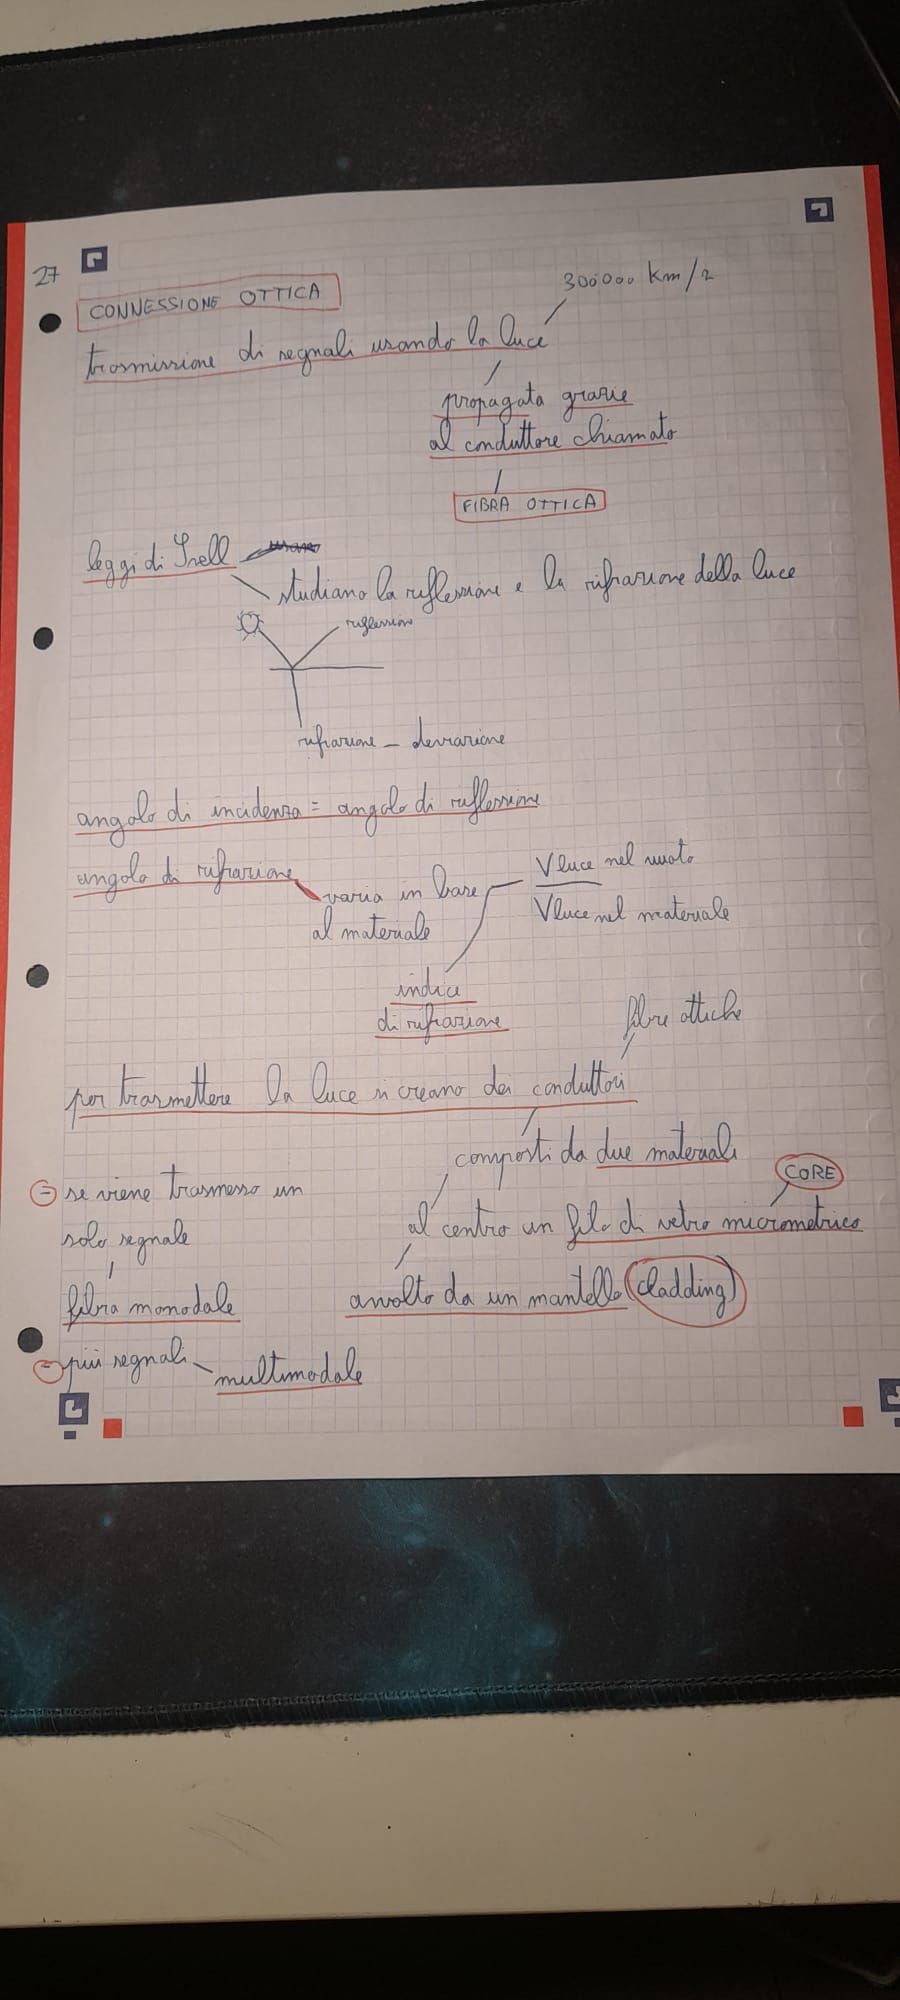 27
CONNESSIONE OTTICA
300000 km/s
trasmissione di segnali usando la luce
propagata grazie
al conduttore chiamato
FIBRA OTTICA
leggi di Snell
studiano la riflessione e la rifrazione della luce
riflessione
rifrazione - deviazione
angolo di incidenza = angolo di riflessione
angolo di rifrazione
varia in base
al materiale
V luce nel vuoto
V luce nel materiale
indice
di rifrazione
fibre ottiche
per trasmettere la luce si creano dei conduttori
composti da due materiali
CORE
al centro un filo di vetro micrometrico
avvolto da un mantello (cladding)
- se viene trasmesso un
solo segnale
fibra monodale
- più segnali
multimodale